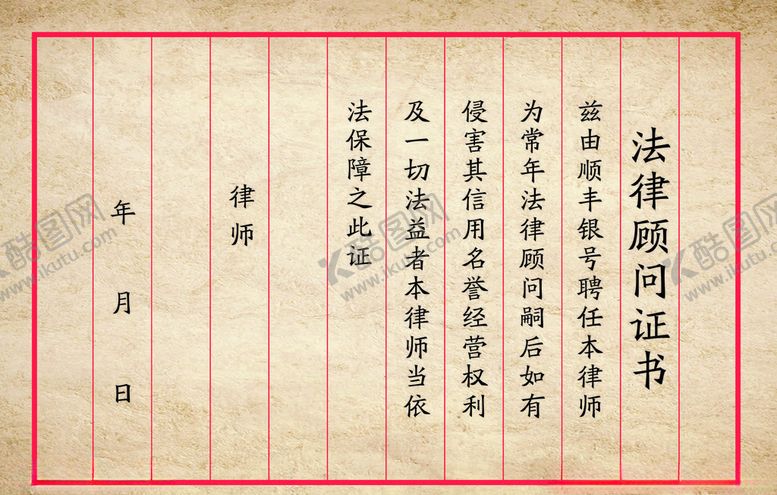 法律顾问证书
兹由顺丰银号聘任本律师
为常年法律顾问嗣后如有
侵害其信用名誉经营权利
及一切法益者本律师当依
法保障之此证
律师
年月日
酷图网
www.ikutu.com
酷图网
www.ikutu.com
酷图网
www.ikutu.com